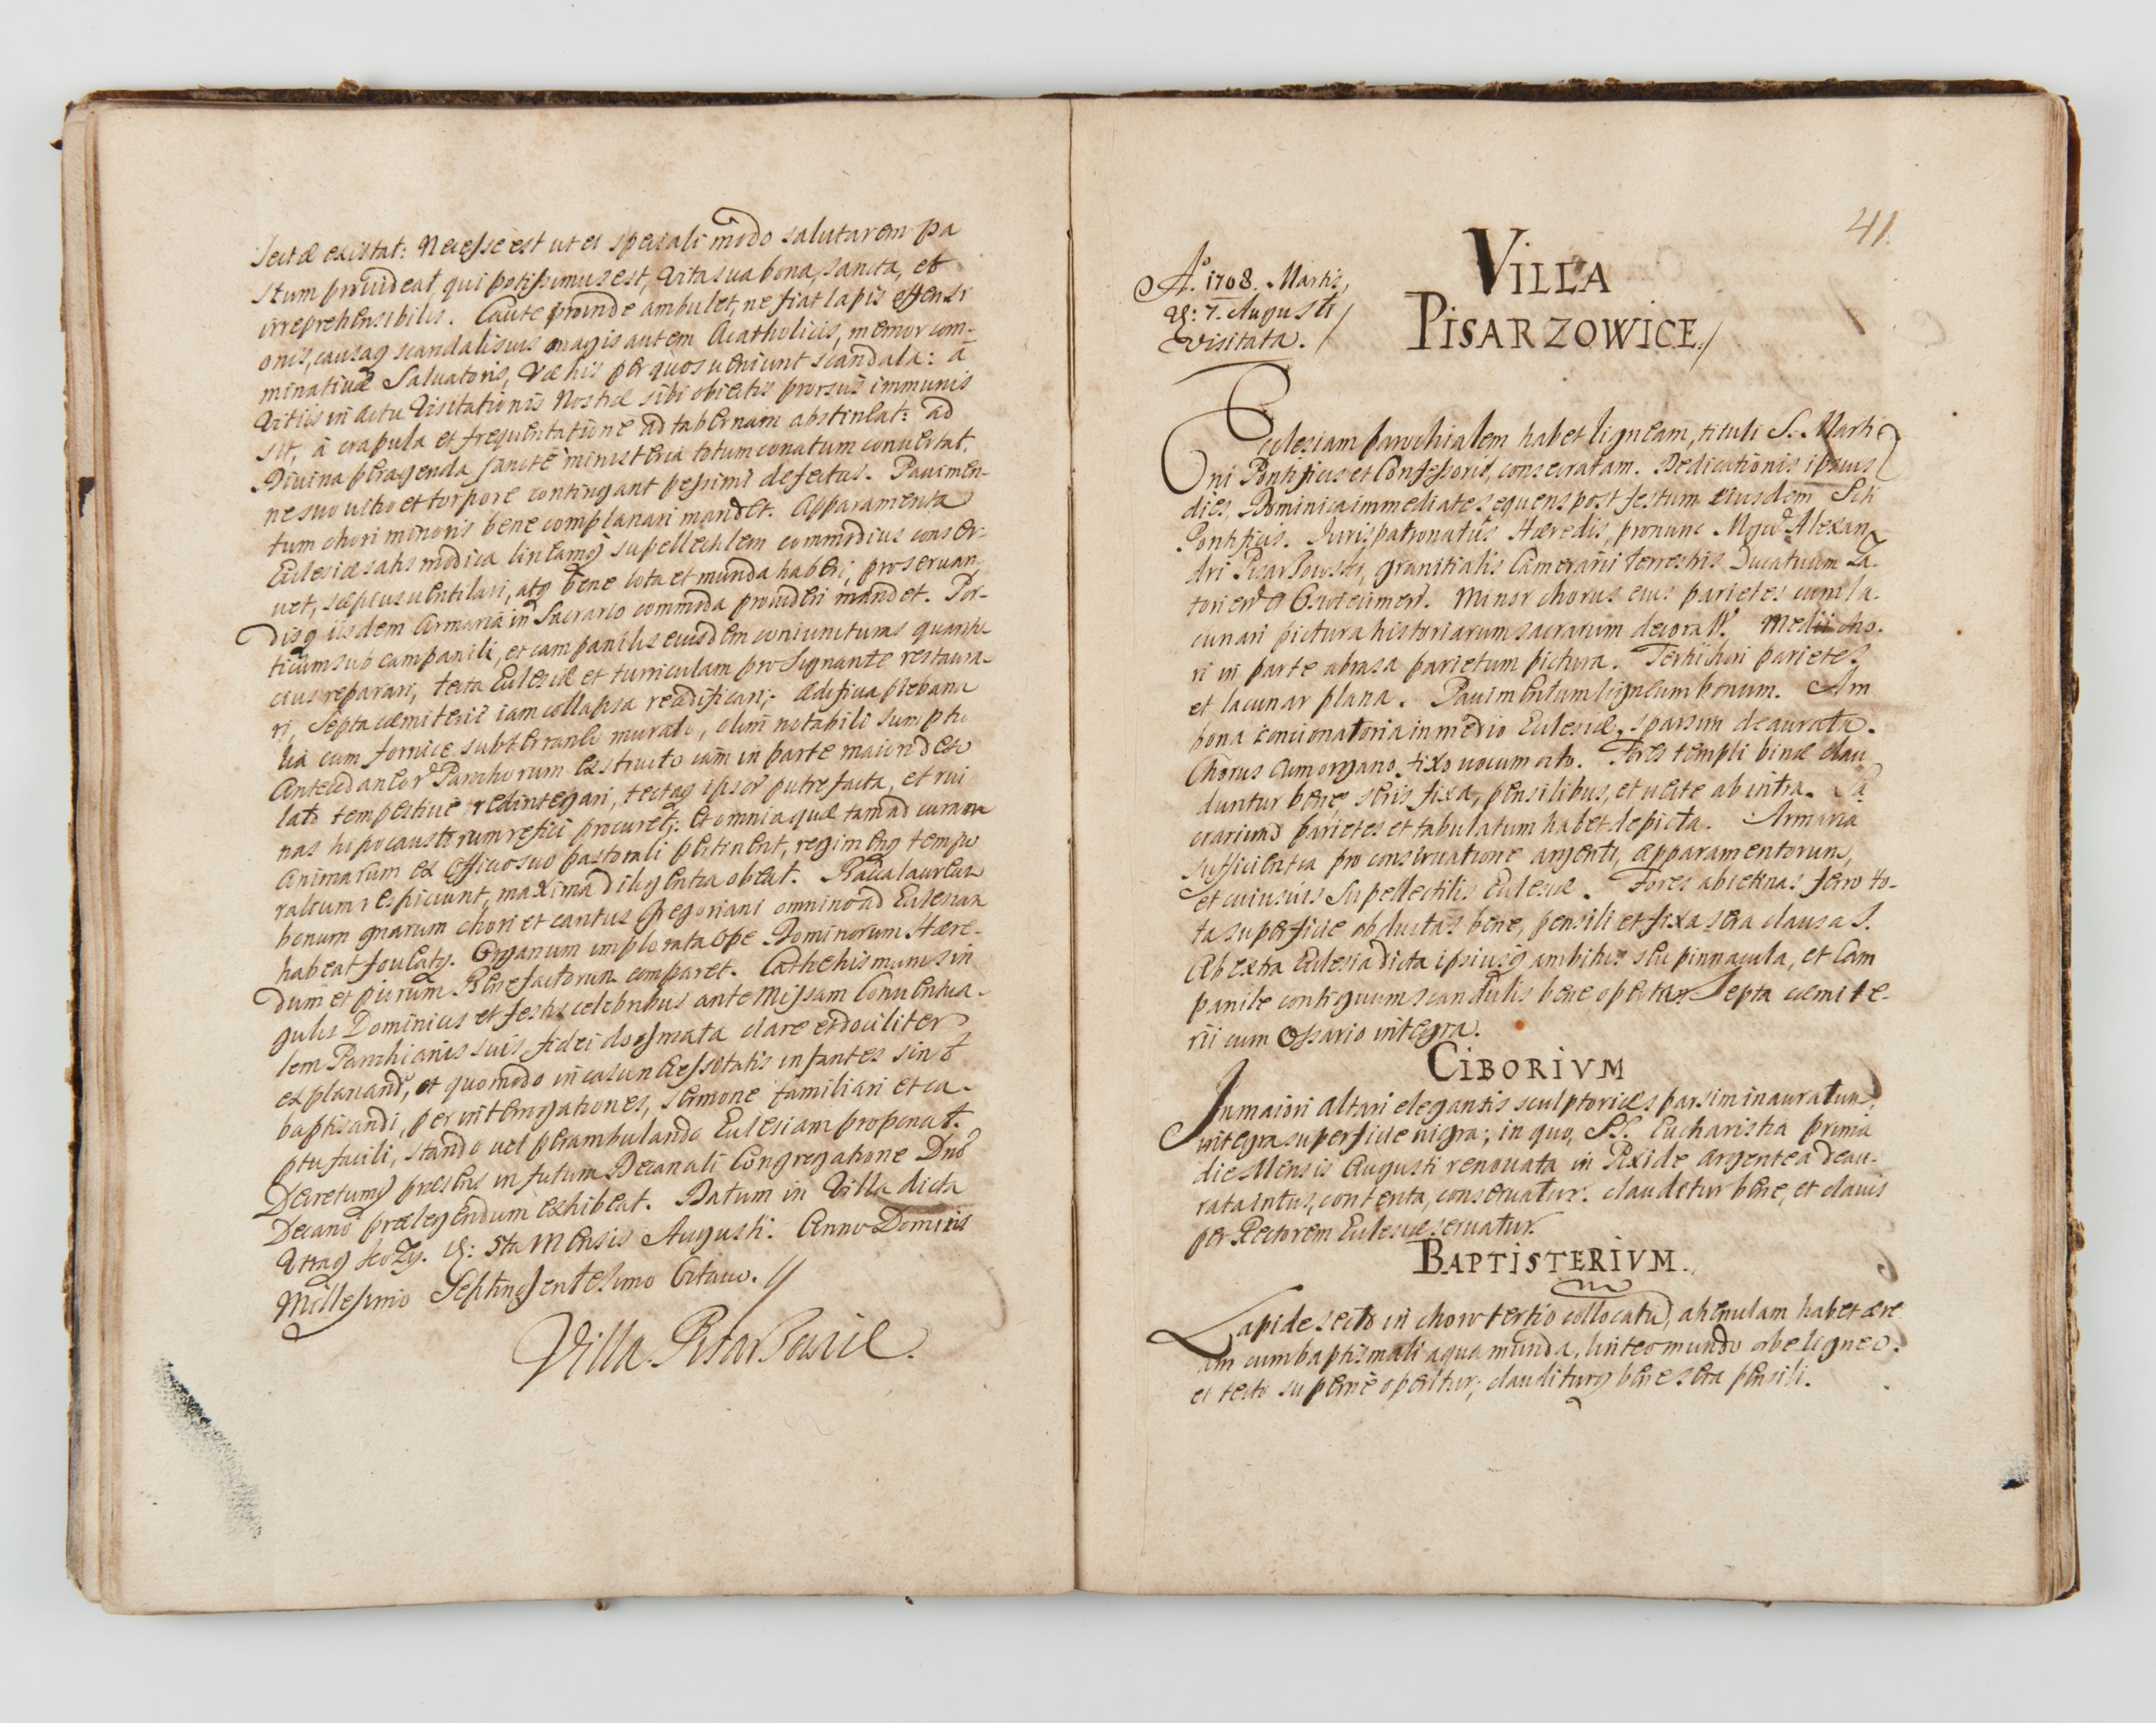 sectæ existat: Necesse est ut ei speciali modo salutarem pa
stum prouideat qui potissimus est, vita sua bona, sancta, et
irreprehensibilis. Caute proinde ambulet, ne fiat lapis offensi
onis, causaq scandali suis magis autem Acatholicis, memor com-
minatiuæ Saluatoris, Væ his per quos ueniunt scandala: à
Vitiis in actu Visitationis Nostræ sibi obiectis prorsus immunis
sit, à crapula et frequentatione ad tabernam abstineat: ad
Diuina peragenda sancte ministeria totum conatum conuertat.
ne suo uitio et torpore contingant pessimi defectus. Pauimen-
tum chori minoris bene complanari mandet. Apparamenta
Ecclesiæ satis modica lineamq supellectilem commodius conser-
uet, sæpius uentilari, atq bene lota et munda haberi, pro seruan
disq iisdem Armaria in Sacrario commoda prouideri mandet. Por-
ticum sub campanili, et campanilis eiusdem coniuncturas quanto
cius reparari, tecta Ecclesiæ et turriculam pro Signante restaura-
ri, Septa cæmiterii iam collapsa reædificari; ædificia plebana
lia cum fornice subterraneo murato, olim notabili sumptu
Antecedaneor Parochorum exstructo iam in parte maiori deso
lato tempestiue redintegrari, tectaq ipsor putrefacta, et rui
nas hipocaustorum refici procuret; et omnia quæ tam ad curam
animarum ex officio suo pastorali pertinent, regimenq tempo
ralium respiciunt, maxima diligentia obeat. Baccalaureum
bonum gnarum chori et cantus Gregoriani omnino ad Ecclesiam
habeat foueatq. Organum implorata ope Dominorum Hære-
dum et piorum Benefactorum comparet. Cathehismum sin
gulis Dominicis et festis celebribus ante Missam Conuentua-
lem Parochianis suis fidei dogmata clare et dociliter
explanand, et quomodo in casu necessitatis infantes sint
baptisandi, per interrogationes, sermone familiari et ca-
ptu facili, stando uel perambulando Ecclesiam proponat.
Decretumq præsens in futura Decanali Congregatione Dno
Decano prælegendum exhibeat. Datum in Villa dicta
Vtraq Kozy. d: 5ta Mensis Augusti. Anno Domini
Millesimo Septingentesimo Octauo. //
Villa Pisarzowice.
41.
Aº. 1708. Martis,
d: 7. Augusti
Visitata. /
VILLA
PISARZOWICE./
Ecclesiam parochialem habet ligneam, tituli S. Marti
ni Pontificis et Confessoris, consecratam. Dedicationis ipsius
dies, Dominica immediate sequens post festum eiusdem Scti
Pontificis. Iuris patronatus Hæredis, pro nunc Mgci Alexan
dri Pisarzowski, granitialis Camerarii terrestris Ducatuum Za-
torien et Oswiecimen. Minor chorus eius parietes cum la-
cunari pictura historiarum sacrarum decorat. Medii cho-
ri in parte abrasa parietum pictura. Tertii chori parietes
et lacunar plana. Pauimentum ligneum bonum. Am
bona concionatoria in medio Ecclesiæ, sparsim deaurata.
Chorus cum organo fixo uocum octo. Fores templi binæ clau
duntur bene seris fixa, pensilibus, et uecte ab intra. Sa
crarium parietes et tabulatum habet depicta. Armaria
sufficientia pro conseruatione argenti, apparamentorum,
et cuiusuis supellectilis Ecclesiæ. Fores abietinas ferro to-
ta superficie obductas bene, pensili et fixa sera clausas.
Ab extra Ecclesia dicta ipsiusq ambitus seu pinnacula, et Cam
panile contiguum scandulis bene operta. Septa cæmite-
rii cum Ossario integra.
CIBORIVM
In maiori altari elegantis sculptoriæ sparsim inauratum,
integra superficie nigra; in quo, SS. Eucharistia prima
die Mensis Augusti renouata in Pixide argentea deau-
rata intus, contenta, conseruatur. clauditur bene, et clauis
per Rectorem Ecclesiæ seruatur.
BAPTISTERIVM.
Lapide secto in choro tertio collocatu, ahenulam habet ære
am cum baptismali aqua munda, linteo mundo orbe ligneo.
et tecto superne operitur; clauditurq bene sera pensili.